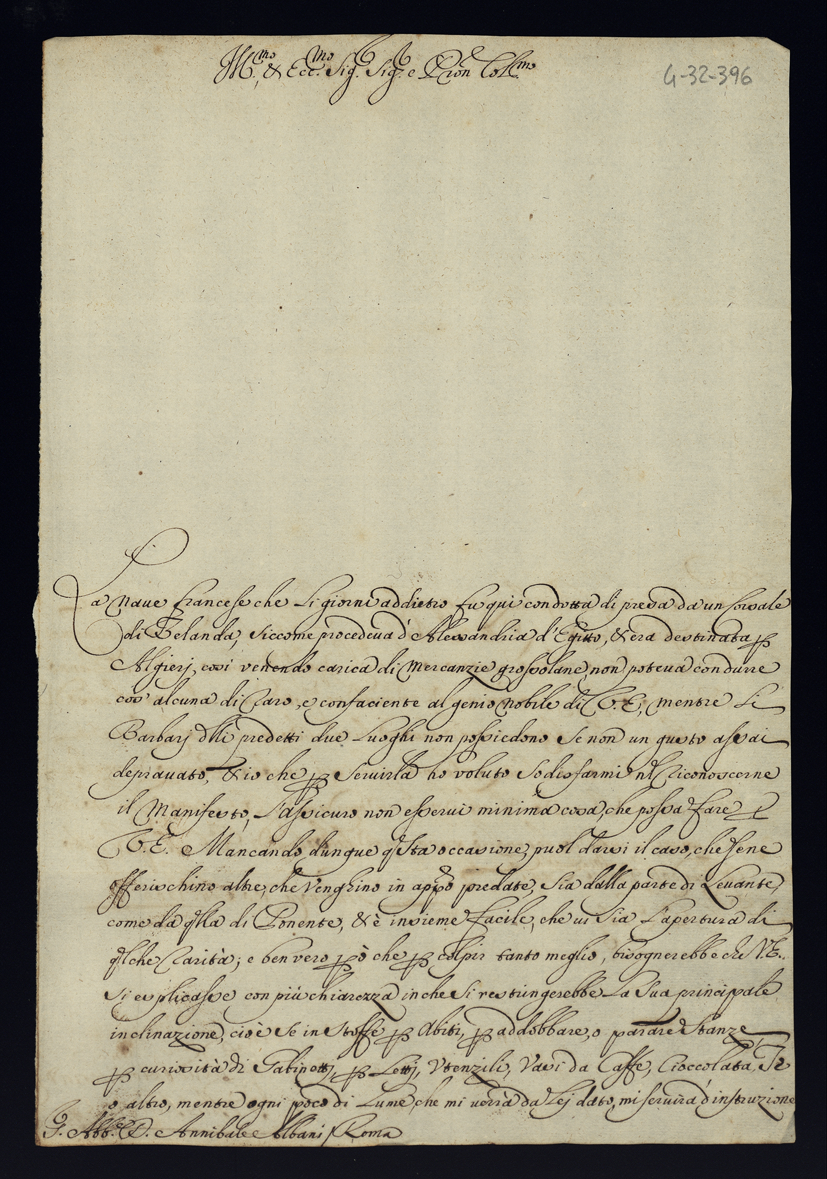 Ill.mo & Ecc.mo Sig. Sig. e Pron Coll.mo
G-32-396
La Naue francese che li giorni addietro fu qui condotta di presa da un Corsale
di Zelanda, siccome procedeua d'Alessandria d'Egitto, & era destinata p
Algieri, così venendo carica di Mercanzie grossolane, non poteua condurre
cos' alcuna di raro, e confaciente al genio nobile di V.E., mentre li
Barbarj dlli predetti due luoghi non possiedono se non un gusto assai
deprauato, & io che p seruirla ho voluto sodisfarmi nel riconoscerne
il Manifesto, l'assicuro non esserui minima cosa, che possa fare p
V.E. Mancando dunque qsta occasione, puol darsi il caso, che sene
offerischino altre, che venghino in app.o predate, sia dalla parte di Leuante,
come da qlla di Ponente, & è insieme facile, che ui sia l'apertura di
qlche rarità; e ben vero pò che p colpir tanto meglio, bisognerebbe che V.E.
si esplicasse con più chiarezza in che si restringerebbe la sua principale
inclinazione, cioè se in stoffe p Abiti, p addobbare, o parare stanze,
p curiosità di Gabinetti, p Letti, Vtenzili, Vasi da Caffe, Cioccolata, Te
o altro, mentre ogni poco di lume, che mi uerrà da lej dato, mi seruirà d'instruzione
S. Abb.e D. Annibale Albani / Roma